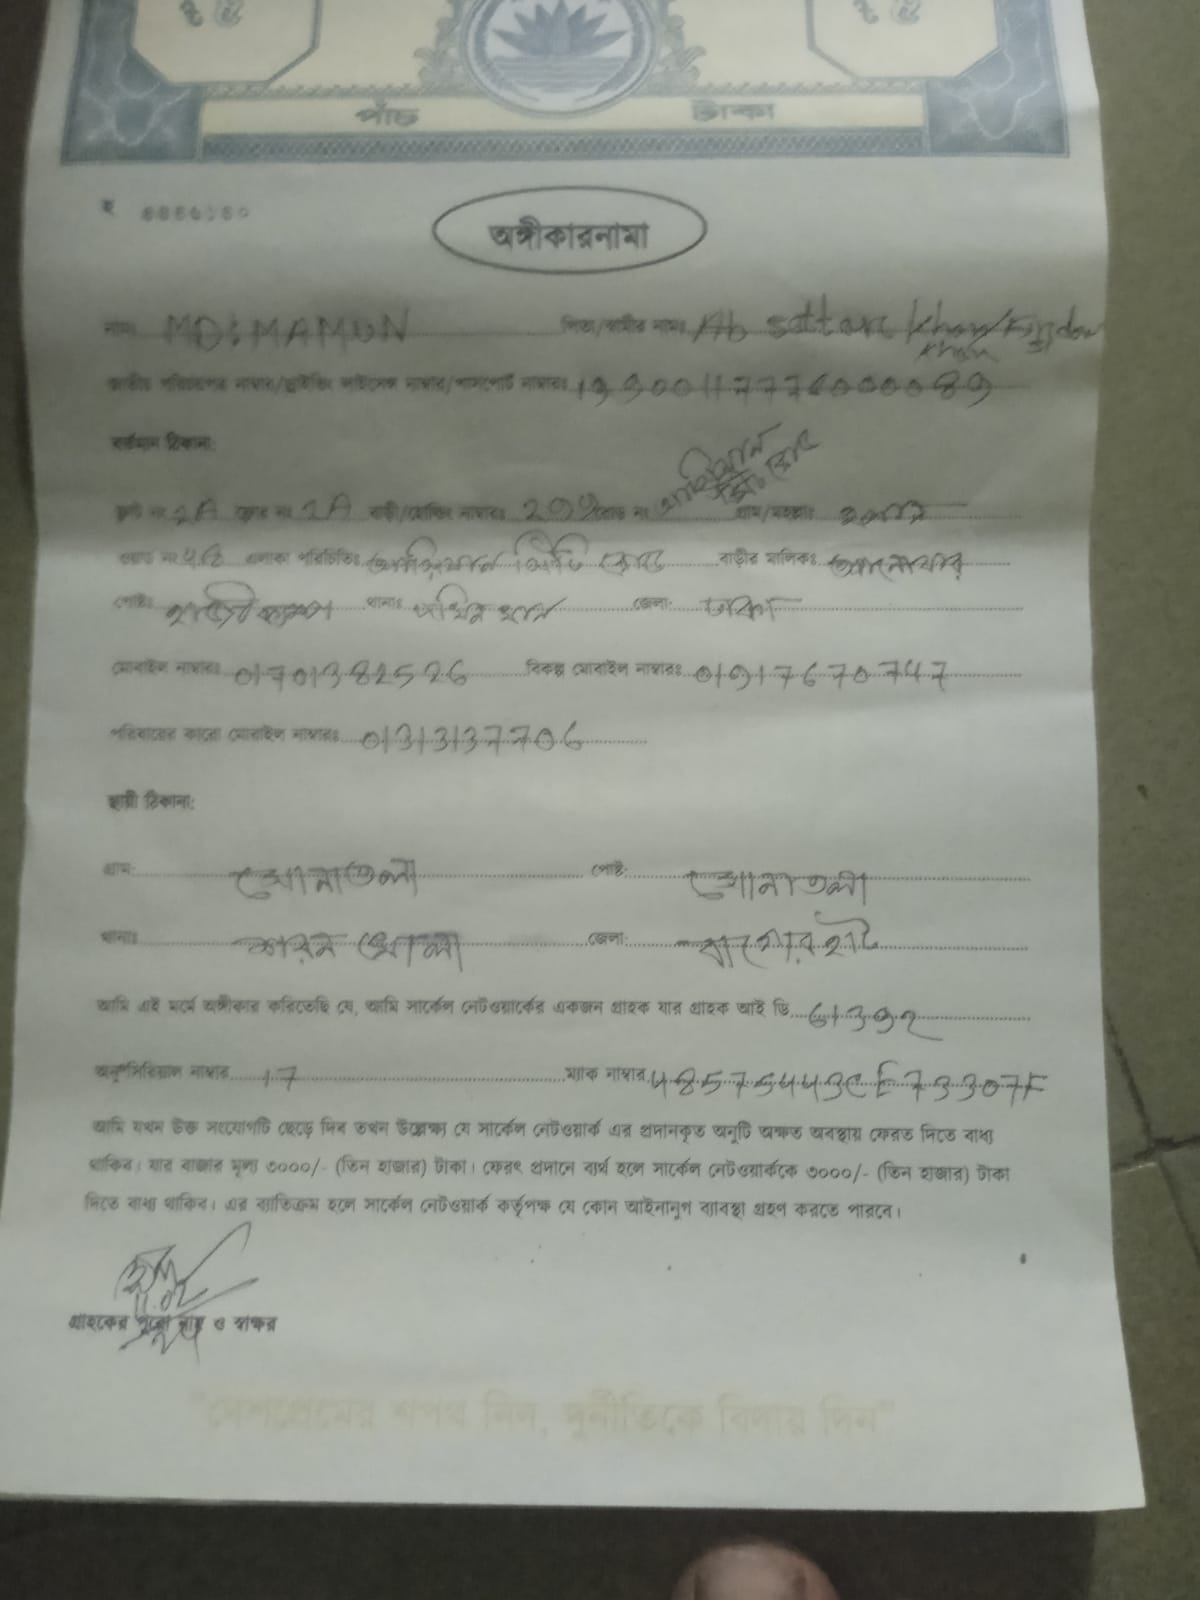 পাঁচ টাকা
অঙ্গীকারনামা
নামঃ MD: MAMUN পিতা/স্বামীর নামঃ Ab sattar khan
জাতীয় পরিচয়পত্র নাম্বার/ড্রাইভিং লাইসেন্স নাম্বার/পাসপোর্ট নাম্বারঃ
বর্তমান ঠিকানা:
ফ্লাট নং 2A ফ্লোর নং 2A বাড়ী/হোল্ডিং নাম্বারঃ রোড নং গ্রাম/মহল্লাঃ
ওয়ার্ড নং এলাকা পরিচিতিঃ আশিয়ান সিটি রোড বাড়ীর মালিকঃ আনোয়ার
পোষ্টঃ হাজী ক্যাম্প থানাঃ দক্ষিন খান জেলা: ঢাকা
মোবাইল নাম্বারঃ 01701382526 বিকল্প মোবাইল নাম্বারঃ 01917670747
পরিবারের কারো মোবাইল নাম্বারঃ 01313137706
স্থায়ী ঠিকানা:
গ্রাম: সোনাতলা পোষ্ট: সোনাতলা
থানাঃ শরন খোলা জেলা: বাগেরহাট
আমি এই মর্মে অঙ্গীকার করিতেছি যে, আমি সার্কেল নেটওয়ার্কের একজন গ্রাহক যার গ্রাহক আই ডি 61392
অনু সিরিয়াল নাম্বার 17 ম্যাক নাম্বার 48575443CE73307F
আমি যখন উক্ত সংযোগটি ছেড়ে দিব তখন উল্লেখ্য যে সার্কেল নেটওয়ার্ক এর প্রদানকৃত অনুটি অক্ষত অবস্থায় ফেরত দিতে বাধ্য
থাকিব। যার বাজার মূল্য ৩০০০/- (তিন হাজার) টাকা। ফেরৎ প্রদানে ব্যর্থ হলে সার্কেল নেটওয়ার্ককে ৩০০০/- (তিন হাজার) টাকা
দিতে বাধ্য থাকিব। এর ব্যতিক্রম হলে সার্কেল নেটওয়ার্ক কর্তৃপক্ষ যে কোন আইনানুগ ব্যাবস্থা গ্রহণ করতে পারবে।
গ্রাহকের পুরো নাম ও স্বাক্ষর
"দেশপ্রেমের শপথ নিন, দুর্নীতিকে বিদায় দিন"